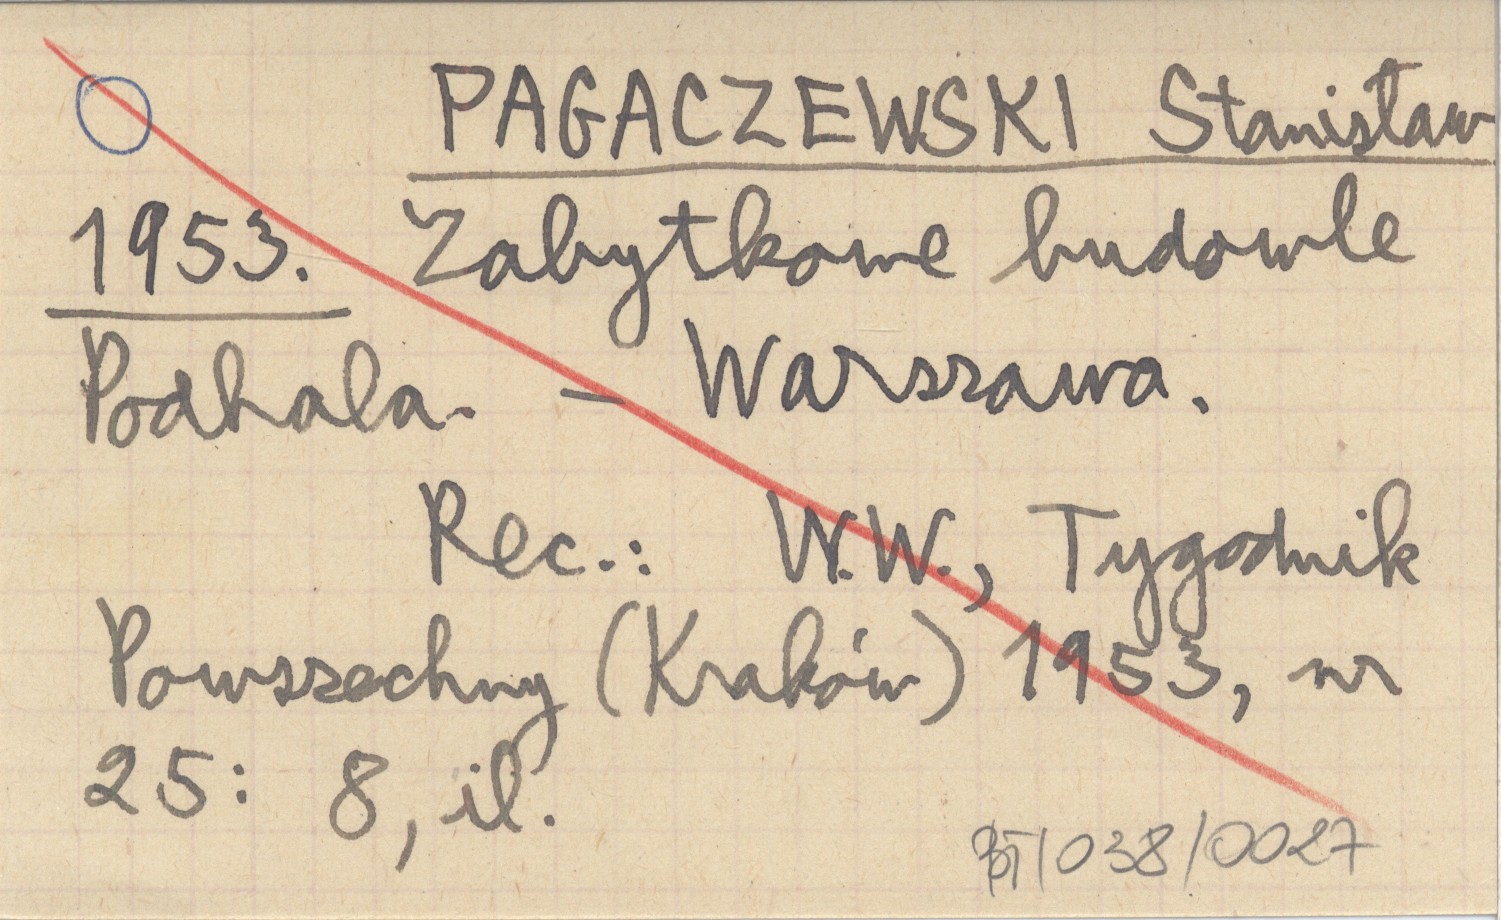 PAGACZEWSKI Stanisław
1953. Zabytkowe budowle
Podhala. – Warszawa.
Rec.: W.W., Tygodnik
Powszechny (Kraków) 1953, nr
25: 8, il.
BT/038/0027